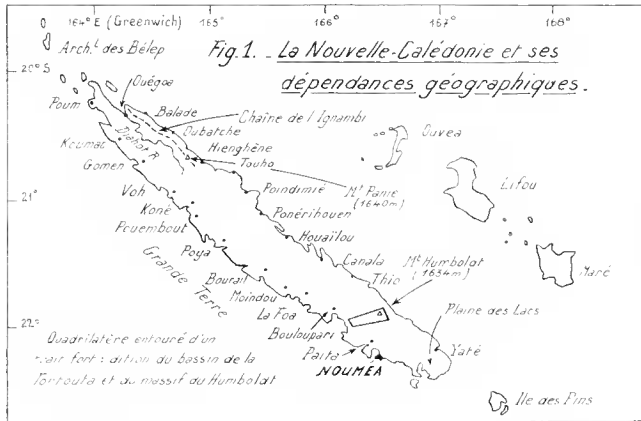 164° E (Greenwich) 165° 166° 167° 168°
Arch.ᵗ des Bélep
Fig. 1. La Nouvelle-Calédonie et ses
dépendances géographiques.
20°S
Ouégoa
Poum
Balade
Chaîne de l'Ignambi
Oubatche
Diahot R.
Hienghène
Touho
Koumac
Gomen
Ouvea
Lifou
Mᵗ Panié
(1640m)
21°
Poindimié
Voh
Ponérihouen
Koné
Pouembout
Houaïlou
Poya
Canala
Mᵗ Humboldt
(1634m)
Maré
Grande Terre
Thio
Bourail
Moindou
La Foa
Plaine des Lacs
22°
Bouloupari
Quadrilatère entouré d'un
fort : dition du bassin de la
Tontouta et du massif du Humboldt
Paita
Yaté
NOUMÉA
Ile des Pins